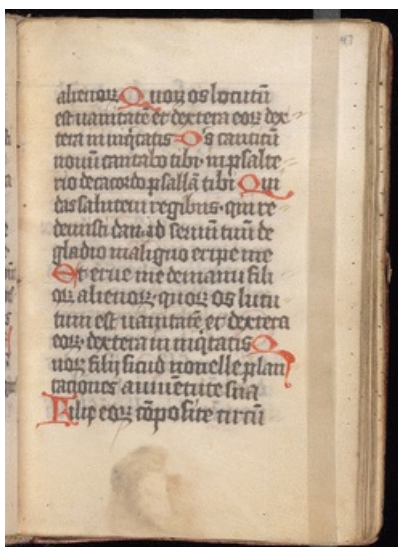 43
alienoꝝ Quoꝝ os locutū
est uanitatē et dextera eoꝝ dex
tera iniqͥtatis Ds canticū
nouū cantabo tibi in psalte
rio decacordo psallā tibi Qui
das salutem regibus qui re
demisti dauid seruū tuū de
gladio maligno eripe me
Et erue me de manu fili
oꝝ alienoꝝ quoꝝ os lucu
tum est uanitatē et dextera
eoꝝ dextera iniqͥtatis Q
uoꝝ filij sicud nouelle plan
taciones a iuuētute sua
Filie eoꝝ cōposite circū